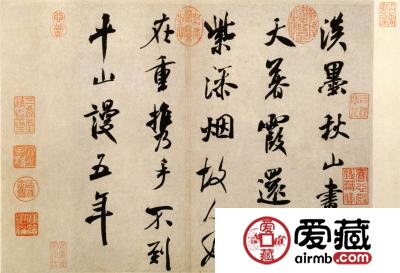 淡墨秋山畫
天暮霞還
紫添烟故人好
在重攜手不到
平山謾五年
爱藏
airmb.com